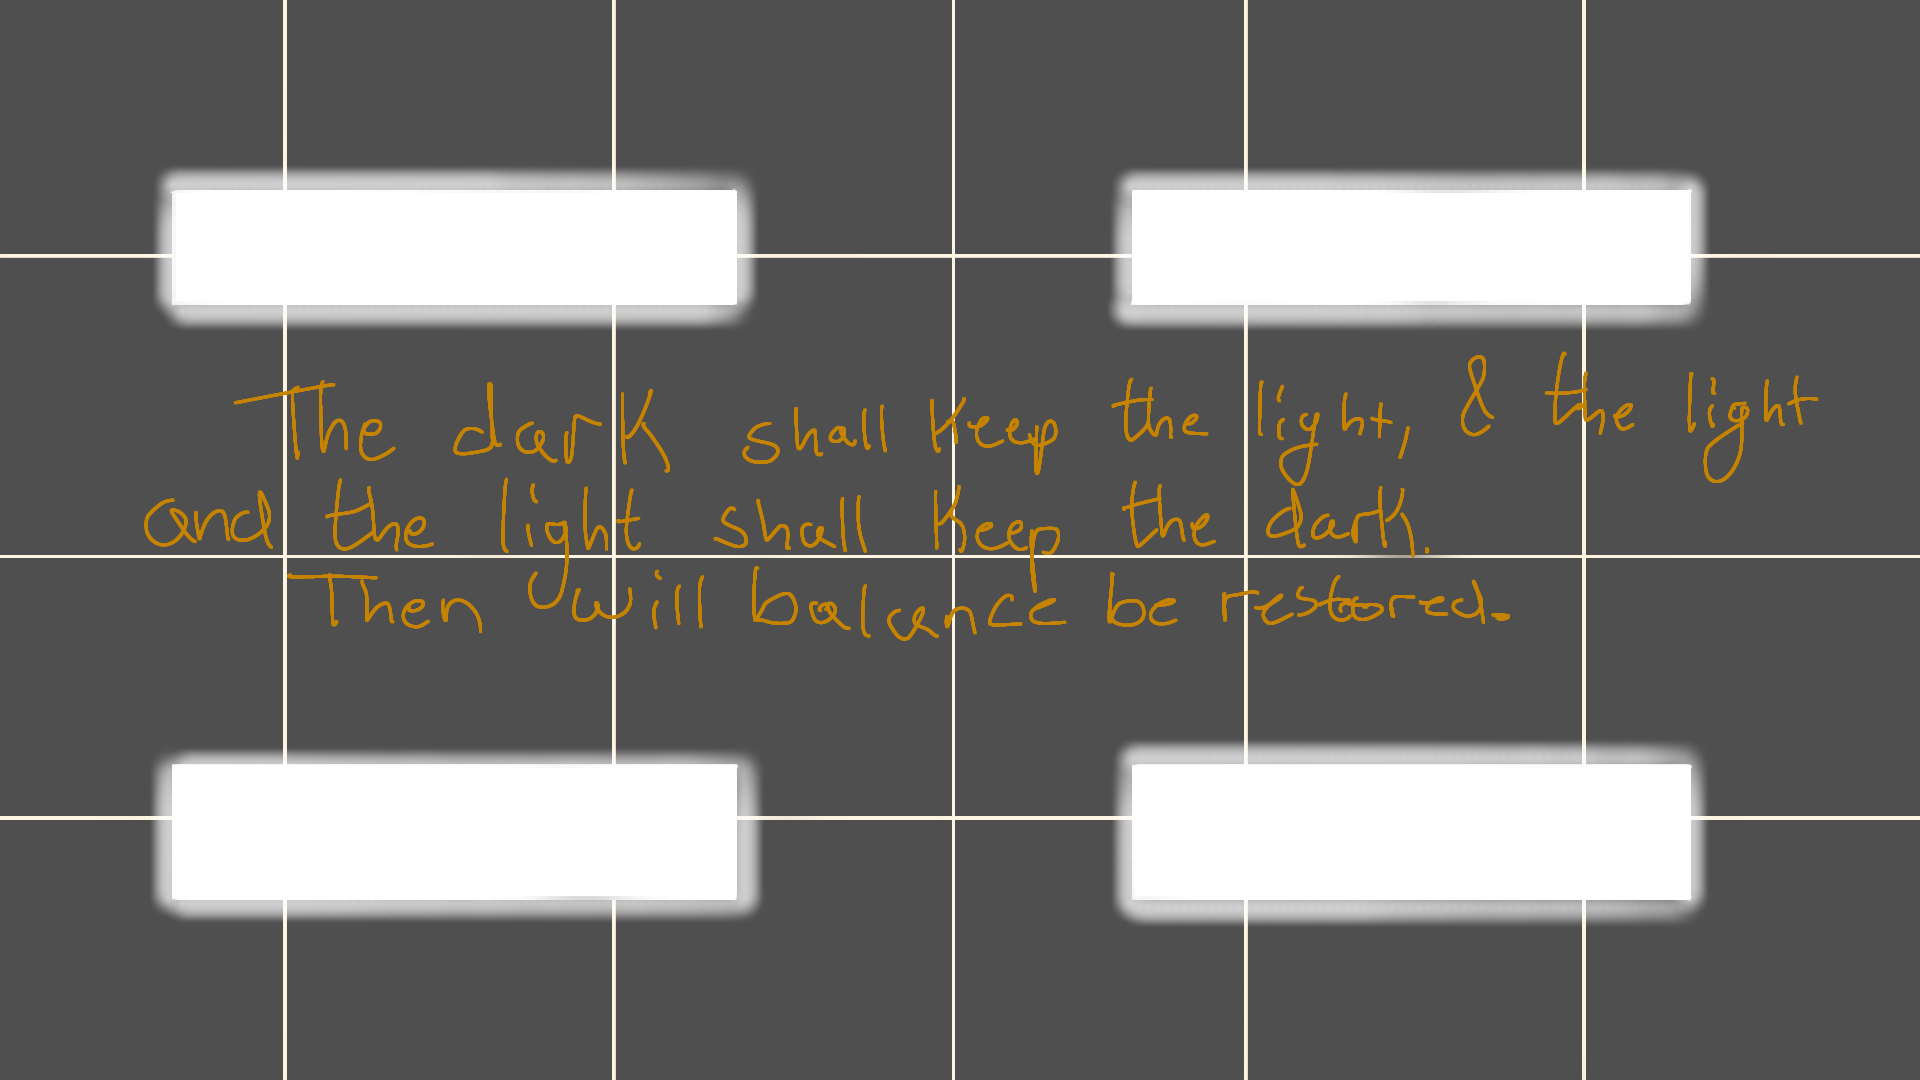 The dark shall keep the light, & the light
and the light shall keep the dark.
Then will balance be restored.